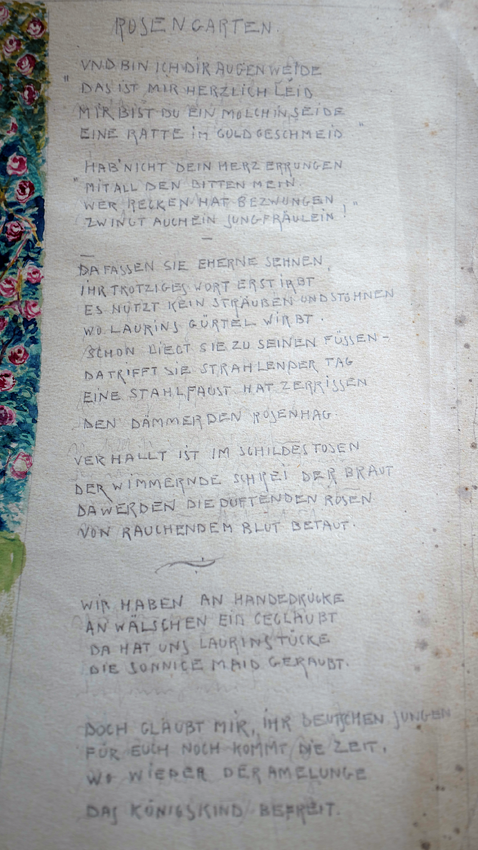 ROSENGARTEN
"UND BIN ICH DIR AUGENWEIDE
DAS IST MIR HERZLICH LEID
MIR BIST DU EIN MOLCH IN SEIDE
EINE RATTE IM GOLDGESCHMEID"
HAB' NICHT DEIN HERZ ERRUNGEN
"MIT ALL DEN BITTEN MEIN
WER RECKEN HAT BEZWUNGEN,
ZWINGT AUCH EIN JUNGFRÄULEIN!"
DA FASSEN SIE EHERNE SEHNEN,
IHR TROTZIGES WORT ERSTIRBT
ES NÜTZT KEIN STRÄUBEN UND STÖHNEN
WO LAURINS GÜRTEL WIRBT.
SCHON LIEGT SIE ZU SEINEN FÜSSEN –
DA TRIFFT SIE STRAHLENDER TAG
EINE STAHLFAUST HAT ZERRISSEN
DEN DÄMMERDEN ROSENHAG.
VERHALLT IST IM SCHILDESTOSEN
DER WIMMERNDE SCHREI DER BRAUT
DA WERDEN DIE DUFTENDEN ROSEN
VON RAUCHENDEM BLUT BETAUT.
WIR HABEN AN HÄNDEDRÜCKE
AN WÄLSCHEN EID GEGLAUBT
DA HAT UNS LAURINS TÜCKE
DIE SONNIGE MAID GERAUBT.
DOCH GLAUBT MIR, IHR DEUTSCHEN JUNGEN
FÜR EUCH NOCH KOMMT DIE ZEIT,
WO WIEDER DER AMELUNGE
DAS KÖNIGSKIND BEFREIT.